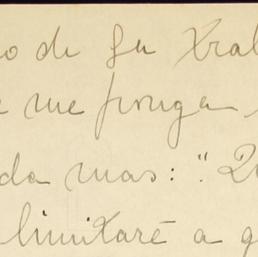 o de su Xral
e me ponga
da mas: "
limitaré a q